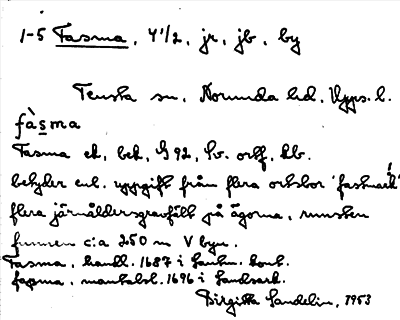 1-5 Fasma, 4 1/2, jr, jb, by
Tensta sn, Norunda hd, Upps. l.
fàsma
Fasma ek, bek, G 92, Sv. ortf, kb.
betyder enl. uppgift från flera ortsbor 'fastmark'!
flera järnåldersgravfält på ägorna, runsten
funnen c:a 250 m V byn.
Fasma, handl. 1687 i Lantm. kont.
fasma, mantalsl. 1696 i Landsark.
Birgitta Sandelin, 1953